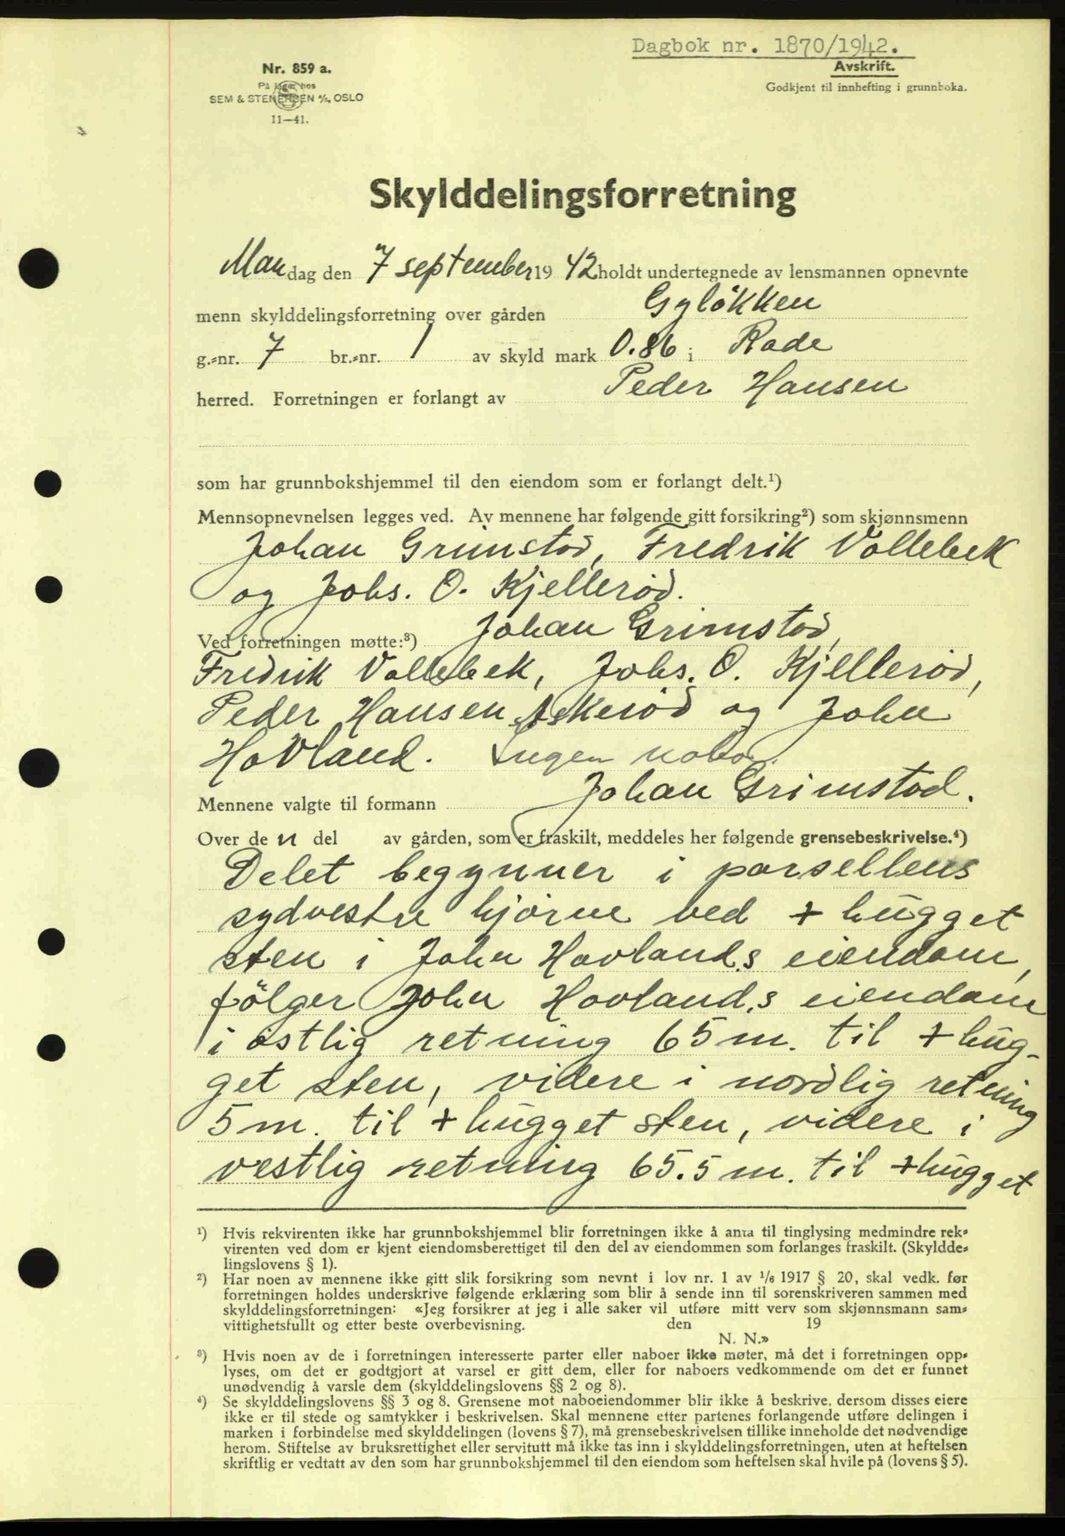 Dagbok nr. 1870/1942.
Avskrift.
Godkjent til innhefting i grunnboka.
Nr. 859 a.
På lager hos
SEM & STENERSEN A/S, OSLO
11—41.
Skylddelingsforretning
Mandag den 7 september 1942 holdt undertegnede av lensmannen opnevnte
menn skylddelingsforretning over gården Gyløkken
g.-nr. 7 br.-nr. 1 av skyld mark 0.86 i Rade
herred. Forretningen er forlangt av Peder Hansen
som har grunnbokshjemmel til den eiendom som er forlangt delt.¹)
Mennsopnevnelsen legges ved. Av mennene har følgende gitt forsikring²) som skjønnsmenn
Johan Grimstad, Fredrik Vollebek
og Johs. O. Kjellerød.
Ved forretningen møtte:³) Johan Grimstad,
Fredrik Vollebek, Johs. O. Kjellerød,
Peder Hansen Askerød og John
Hovland. Ingen nabo.
Mennene valgte til formann Johan Grimstad.
Over den del av gården, som er fraskilt, meddeles her følgende grensebeskrivelse.⁴)
Delet begynner i parsellens
sydvestre hjørne ved + hugget
sten i John Hovlands eiendom,
følger John Hovlands eiendom
i østlig retning 65 m. til + hug-
get sten, videre i nordlig retning
5 m. til + hugget sten, videre i
vestlig retning 65.5 m. til + hugget
¹) Hvis rekvirenten ikke har grunnbokshjemmel blir forretningen ikke å anta til tinglysing medmindre rek-
virenten ved dom er kjent eiendomsberettiget til den del av eiendommen som forlanges fraskilt. (Skyldde-
lingslovens § 1).
²) Har noen av mennene ikke gitt slik forsikring som nevnt i lov nr. 1 av 1/6 1917 § 20, skal vedk. før
forretningen holdes underskrive følgende erklæring som blir å sende inn til sorenskriveren sammen med
skylddelingsforretningen: «Jeg forsikrer at jeg i alle saker vil utføre mitt verv som skjønnsmann sam-
vittighetsfullt og etter beste overbevisning. den 19
N. N.»
³) Hvis noen av de i forretningen interesserte parter eller naboer ikke møter, må det i forretningen opp-
lyses, om det er godtgjort at varsel er gitt dem, eller for naboers vedkommende om det er funnet
unødvendig å varsle dem (skylddelingslovens §§ 2 og 8).
⁴) Se skylddelingslovens §§ 3 og 8. Grensene mot naboeiendommer blir ikke å beskrive, dersom disses eiere
ikke er til stede og samtykker i beskrivelsen. Skal mennene etter partenes forlangende utføre delingen i
marken i forbindelse med skylddelingen (lovens § 7), må grensebeskrivelsen tillike inneholde det nødvendige
herom. Stiftelse av bruksrettighet eller servitutt må ikke tas inn i skylddelingsforretningen, uten at heftelsen
skriftlig er vedtatt av den som har grunnbokshjemmel til den eiendom som heftelsen skal hvile på (lovens § 5).